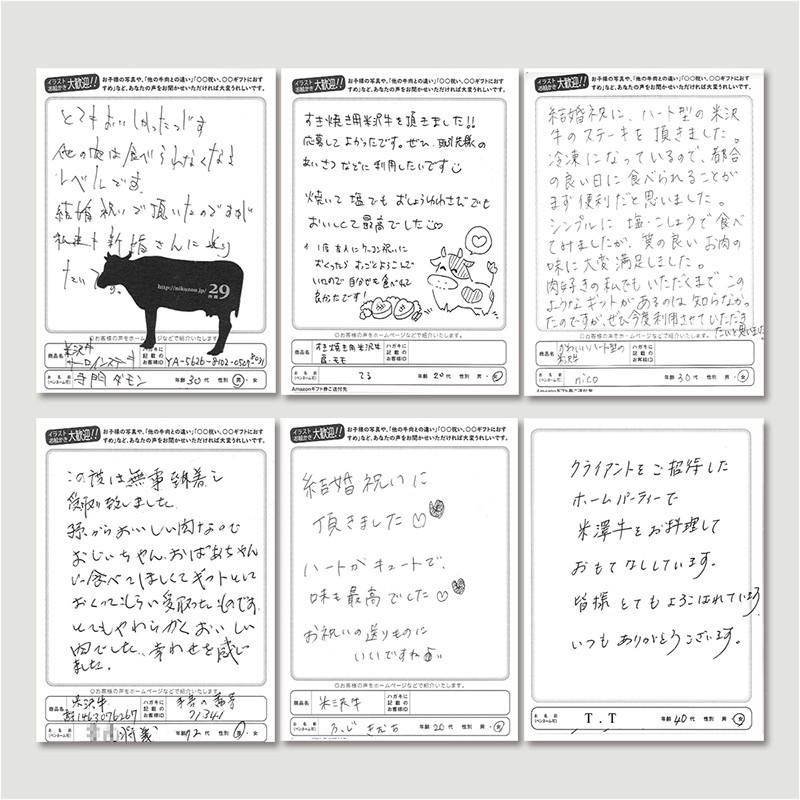 イラスト
お絵かき
大歓迎!!
お子様の写真や、「他の牛肉との違い」「〇〇祝い、〇〇ギフトにおす
すめ」など、あなたの声をお聞かせいただければ大変うれしいです。
とてもおいしかったです
他の肉は食べられなくなる
レベルです。
結婚祝いで頂いたのですが
私達も新婚さんに送り
たいです。
http://nikuzou.jp/
29
◎お客様の声をホームページなどで紹介いたします。
商品名
米沢牛
サーロインステーキ
ハガキに
記載の
お客様ID
YA-5626-8102-0529
お名前
(ペンネーム可)
寺門ダモン
年齢 30代 性別 男・女
イラスト
お絵かき
大歓迎!!
お子様の写真や、「他の牛肉との違い」「〇〇祝い、〇〇ギフトにおす
すめ」など、あなたの声をお聞かせいただければ大変うれしいです。
すき焼き用米沢牛を頂きました!!
応募してよかったです。ぜひ、取引先様の
あいさつなどに利用したいです
焼いて塩でもおしょうゆわさびでも
おいしくて最高でした
おくったらすっごくよろこんで
いたので自分も食べれて
良かったです!
◎お客様の声をホームページなどで紹介いたします。
商品名
すき焼き用米沢牛
肩・モモ
ハガキに
記載の
お客様ID
お名前
(ペンネーム可)
てる
年齢 20代 性別 男・女
Amazonギフト券ご送付先
イラスト
お絵かき
大歓迎!!
お子様の写真や、「他の牛肉との違い」「〇〇祝い、〇〇ギフトにおす
すめ」など、あなたの声をお聞かせいただければ大変うれしいです。
結婚祝に、ハート型の米沢
牛のステーキを頂きました。
冷凍になっているので、都合
の良い日に食べられることが
まず便利だと思いました。
シンプルに塩・こしょうで食べ
てみましたが、質の良いお肉の
味に大変満足しました。
肉好きの私でもいただくまでこの
ようなギフトがあるのは知らなかっ
たのですが、ぜひ今度利用させていただき
たいと思いました
◎お客様の声をホームページなどで紹介いたします。
商品名
かわいいハート型の
米沢牛
ハガキに
記載の
お客様ID
お名前
(ペンネーム可)
nico
年齢 30代 性別 男・女
Amazonギフト券ご送付先
イラスト
お絵かき
大歓迎!!
お子様の写真や、「他の牛肉との違い」「〇〇祝い、〇〇ギフトにおす
すめ」など、あなたの声をお聞かせいただければ大変うれしいです。
この度は無事到着し
受取り致しました。
孫からおいしい肉なので
おじいちゃん、おばあちゃん
に食べてほしくてギフトとして
おくってもらい受取ったものです。
とてもやわらかくおいしい
肉でした。幸わせを感じ
ました。
◎お客様の声をホームページなどで紹介いたします。
商品名
米沢牛
ハガキに
記載の
お客様ID
71341
お名前
(ペンネーム可)
年齢 72代 性別 男・女
イラスト
お絵かき
大歓迎!!
お子様の写真や、「他の牛肉との違い」「〇〇祝い、〇〇ギフトにおす
すめ」など、あなたの声をお聞かせいただければ大変うれしいです。
結婚祝いに
頂きました♡
ハートがキュートで、
味も最高でした♡
お祝いの送りものに
いいですね
◎お客様の声をホームページなどで紹介いたします。
商品名
米沢牛
ハガキに
記載の
お客様ID
お名前
(ペンネーム可)
年齢 20代 性別 男・女
クライアントをご招待した
ホームパーティーで
米澤牛をお料理して
おもてなししています。
皆様とてもよろこばれています
いつもありがとうございます。
お名前
(ペンネーム可)
T.T
年齢 40代 性別 男・女